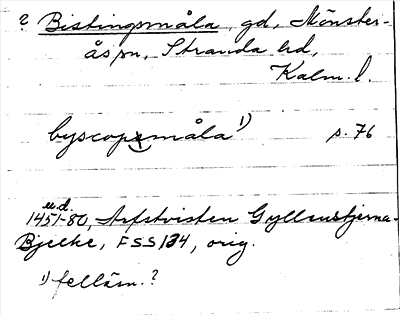 ? Bistingsmåla, gd, Mönster-
ås sn, Stranda hd,
Kalm. l.
byscopsmåla 1) s. 76
u.d.
1451-80, Arfstvisten Gyllenstjerna-
Bjelke, FSS 134, orig.
1) felläsn.?